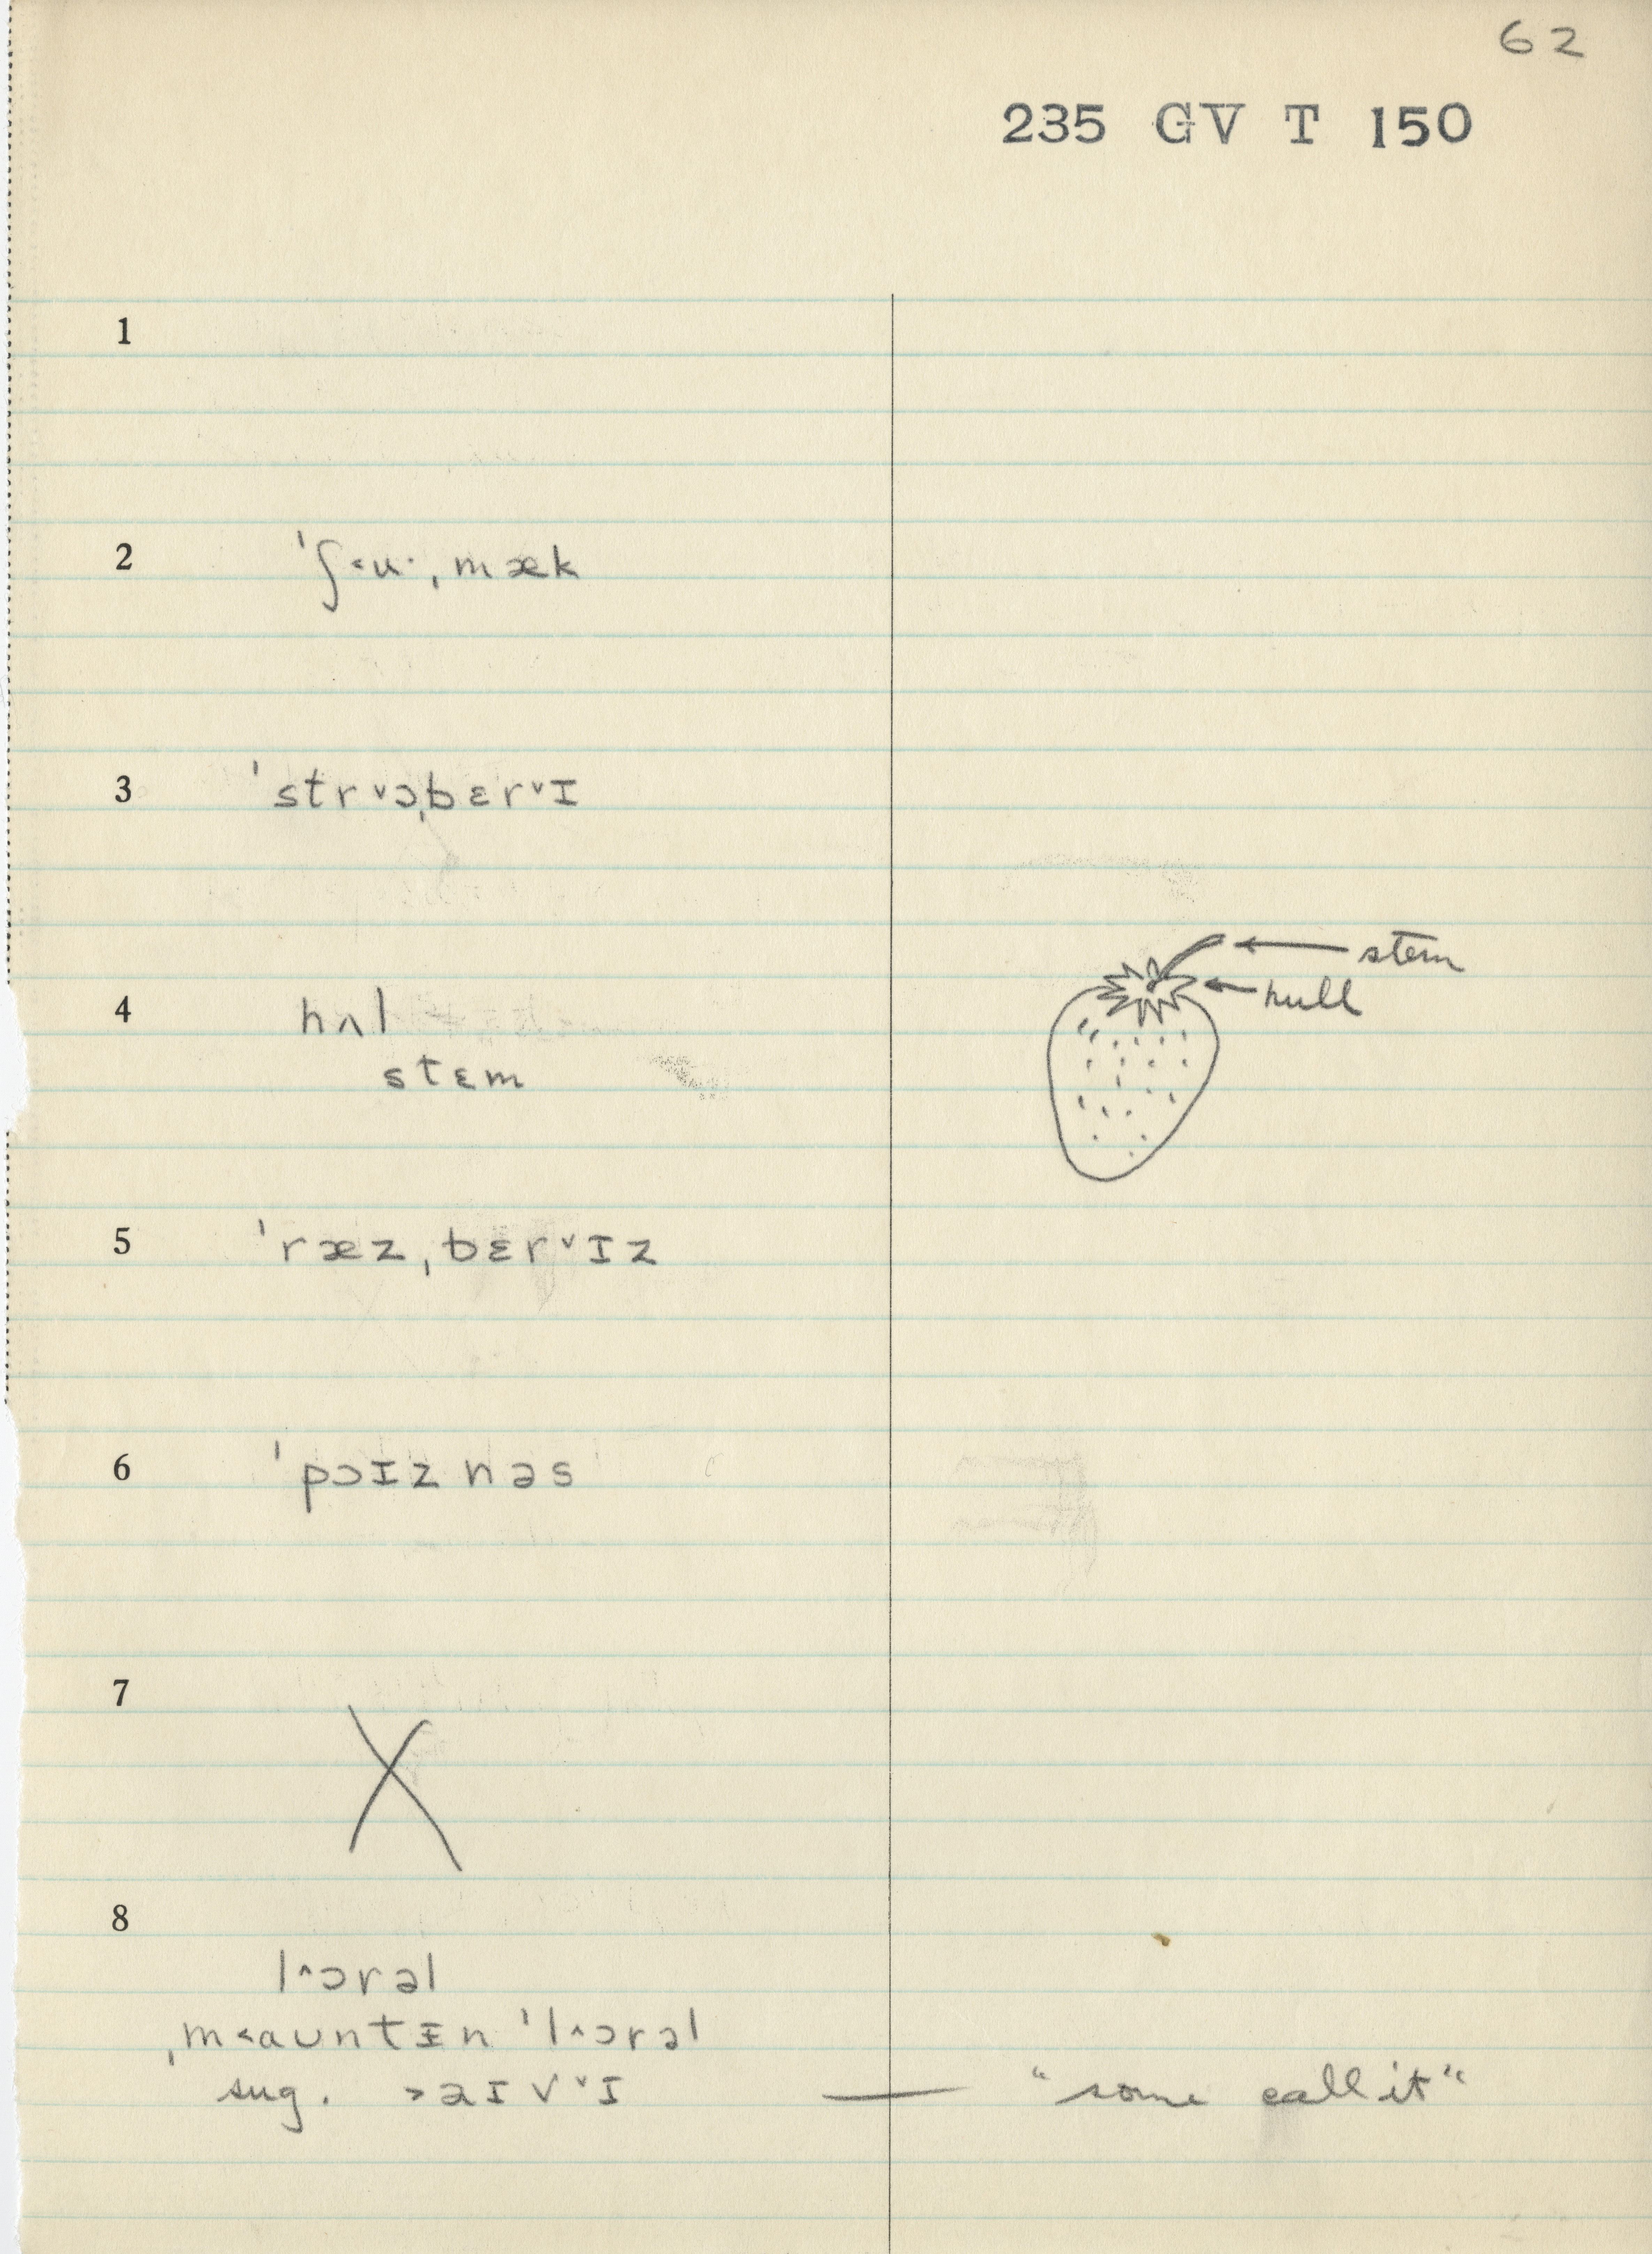 62
235 GV T 150
1
2 ˈʃ˂u·ˌmæk
3 ˈstr˅ɔˌbɛr˅ɪ
stem
hull
4 hʌl
stɛm
5 ˈræzˌbɛr˅ɪz
6 ˈpɔɪznəs
7 X
8
l˄ɔrəl
ˌm˂auntɪn ˈl˄ɔrəl
sug. ˃aɪv˅ɪ — "some call it"